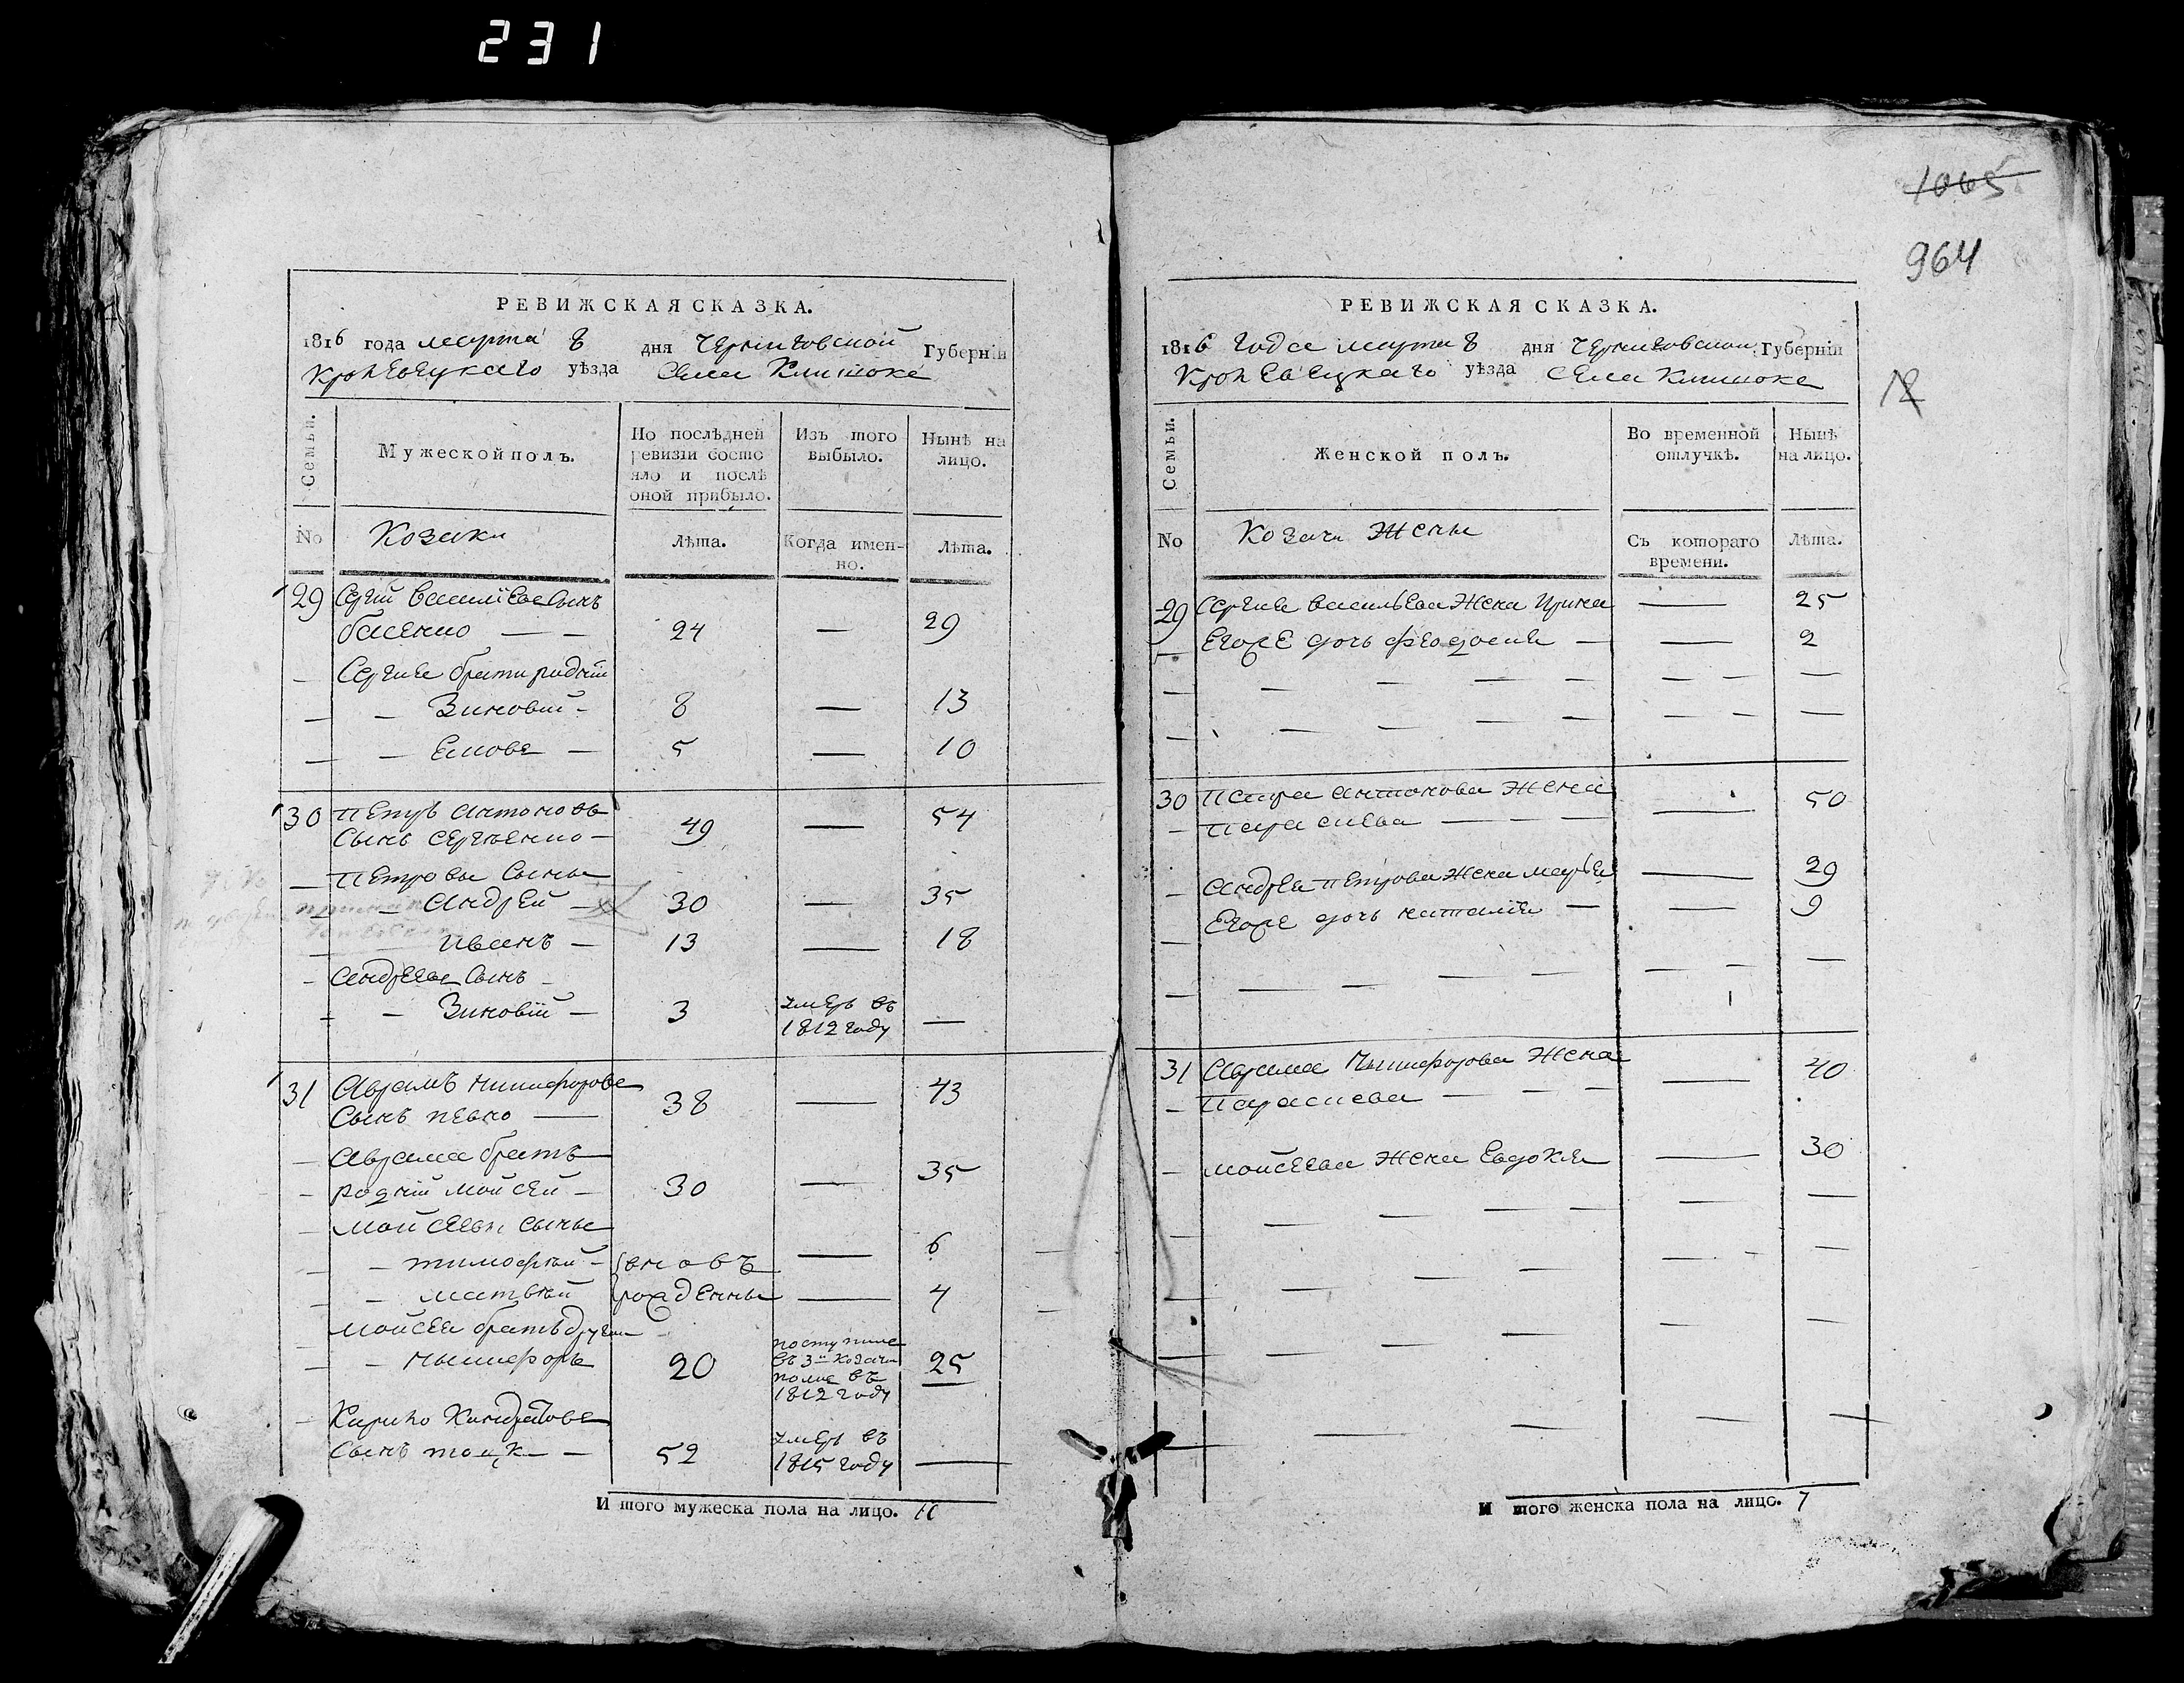 231
1065
964
РЕВИЖСКАЯ СКАЗКА.
1816 года марта 8 дня Черниговской Губерніи
Кролевецкаго уѣзда Села Клишокъ
Семьи.
Мужеской полъ.
По послѣдней ревизіи состояло и послѣ оной прибыло.
Изъ того выбыло.
Нынѣ на лицо.
No
Козаки
Лѣта.
Когда именно.
Лѣта.
29 Сергій Василіевъ Сынъ
Басенко — — 24 — 29
— Сергия братя родніи
— — Зиновій — 8 — 13
— — 5 — 10
30 Петръ Антоновъ
Сынъ Сергѣенко — 49 — 54
— Петровы Сыны
— Андрей — 30 — 35
— Иванъ — 13 — 18
— Андреевъ Сынъ —
— — Зиновій — 3 умеръ въ 1812 году —
31 Аврамъ Никифоровъ
Сынъ Певко — 38 — 43
— Аврама братъ
— родній Мойсей — 30 — 35
— Мойсеевы сыны
— — Тимофѣй — вновь — 6
— — Матвѣй рожденны — 4
Мойсея братъ другій
— — Никифоръ 20 поступилъ въ 3й козачій полкъ въ 1812 году 25
— Кирило Кондратовъ
Сынъ — 52 умеръ въ 1815 году —
И того мужеска пола на лицо. 10
РЕВИЖСКАЯ СКАЗКА.
1816 Года марта 8 дня Черниговской Губерніи
Кролевецкаго уѣзда Села Клишокъ
Семьи.
Женской полъ.
Во временной отлучкѣ.
Нынѣ на лицо.
No
Козачи Жены
Съ котораго времени.
Лѣта.
29 Сергия Васильева Жена Ирина — 25
— Егоже дочь Феодосия — — 2
30 Петра Антонова Жена — 50
— Параскева — — —
— Андрея Петрова Жена Марья — 29
— Егоже дочь Наталия — — 9
31 Аврама Никифорова Жена — 40
— Параскева — — —
— Мойсеева Жена Евдокия — 30
И того женска пола на лицо. 7